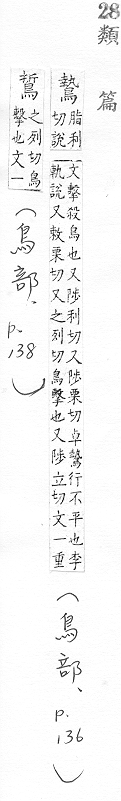 28
類篇
鷙 脂利切說
文擊殺鳥也又陟利切又陟栗切卓鷙行不平也李
軌說又敕栗切又之列切鳥擊也又陟立切文一重
(鳥部、p.136)
鷙 之列切鳥
擊也文一
(鳥部、p.138)